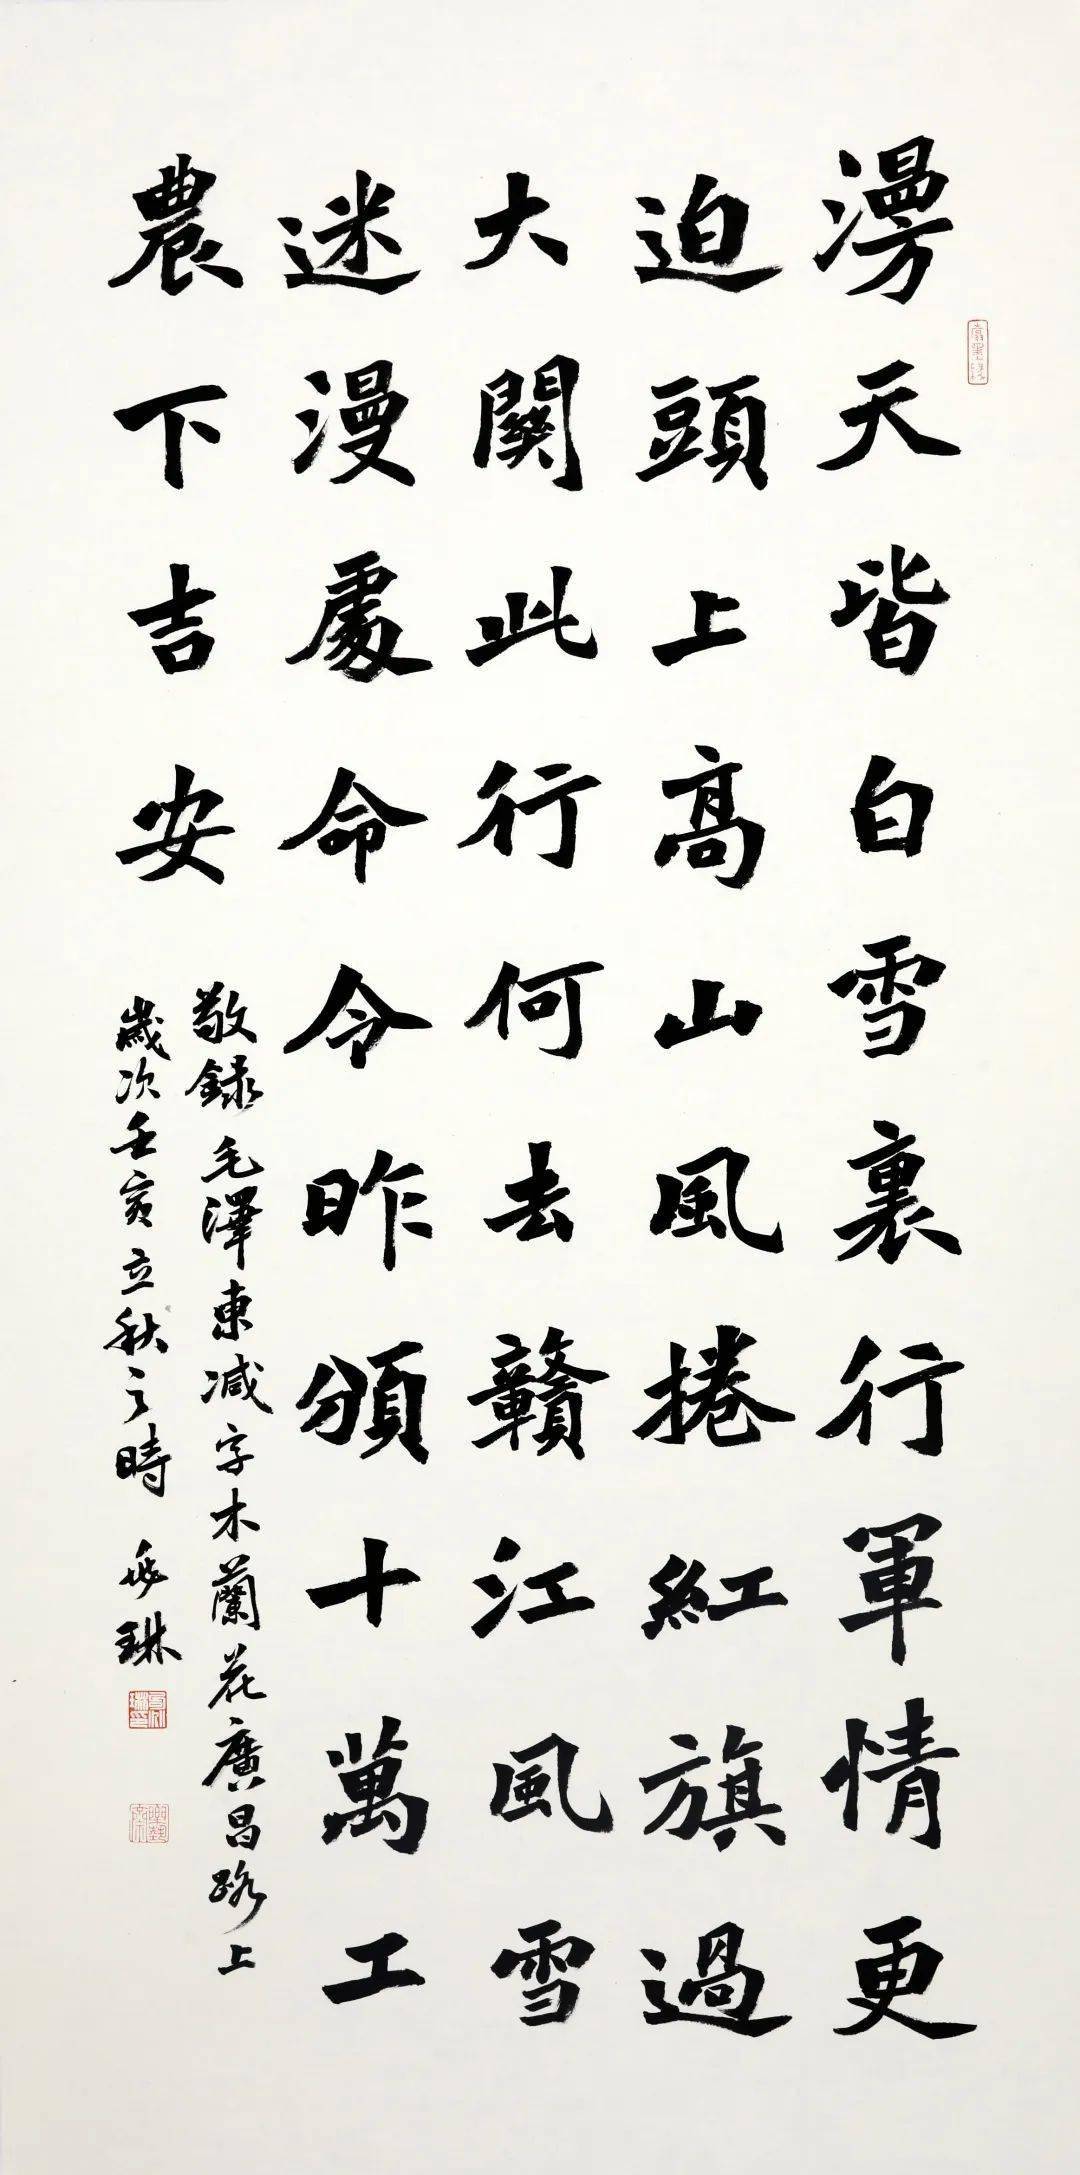 漫天皆白雪裏行軍情更
迫頭上高山風捲紅旗過
大關此行何去贛江風雪
迷漫處命令昨頒十萬工
農下吉安
敬録毛澤東减字木蘭花廣昌路上
歲次壬寅立秋之時 琳